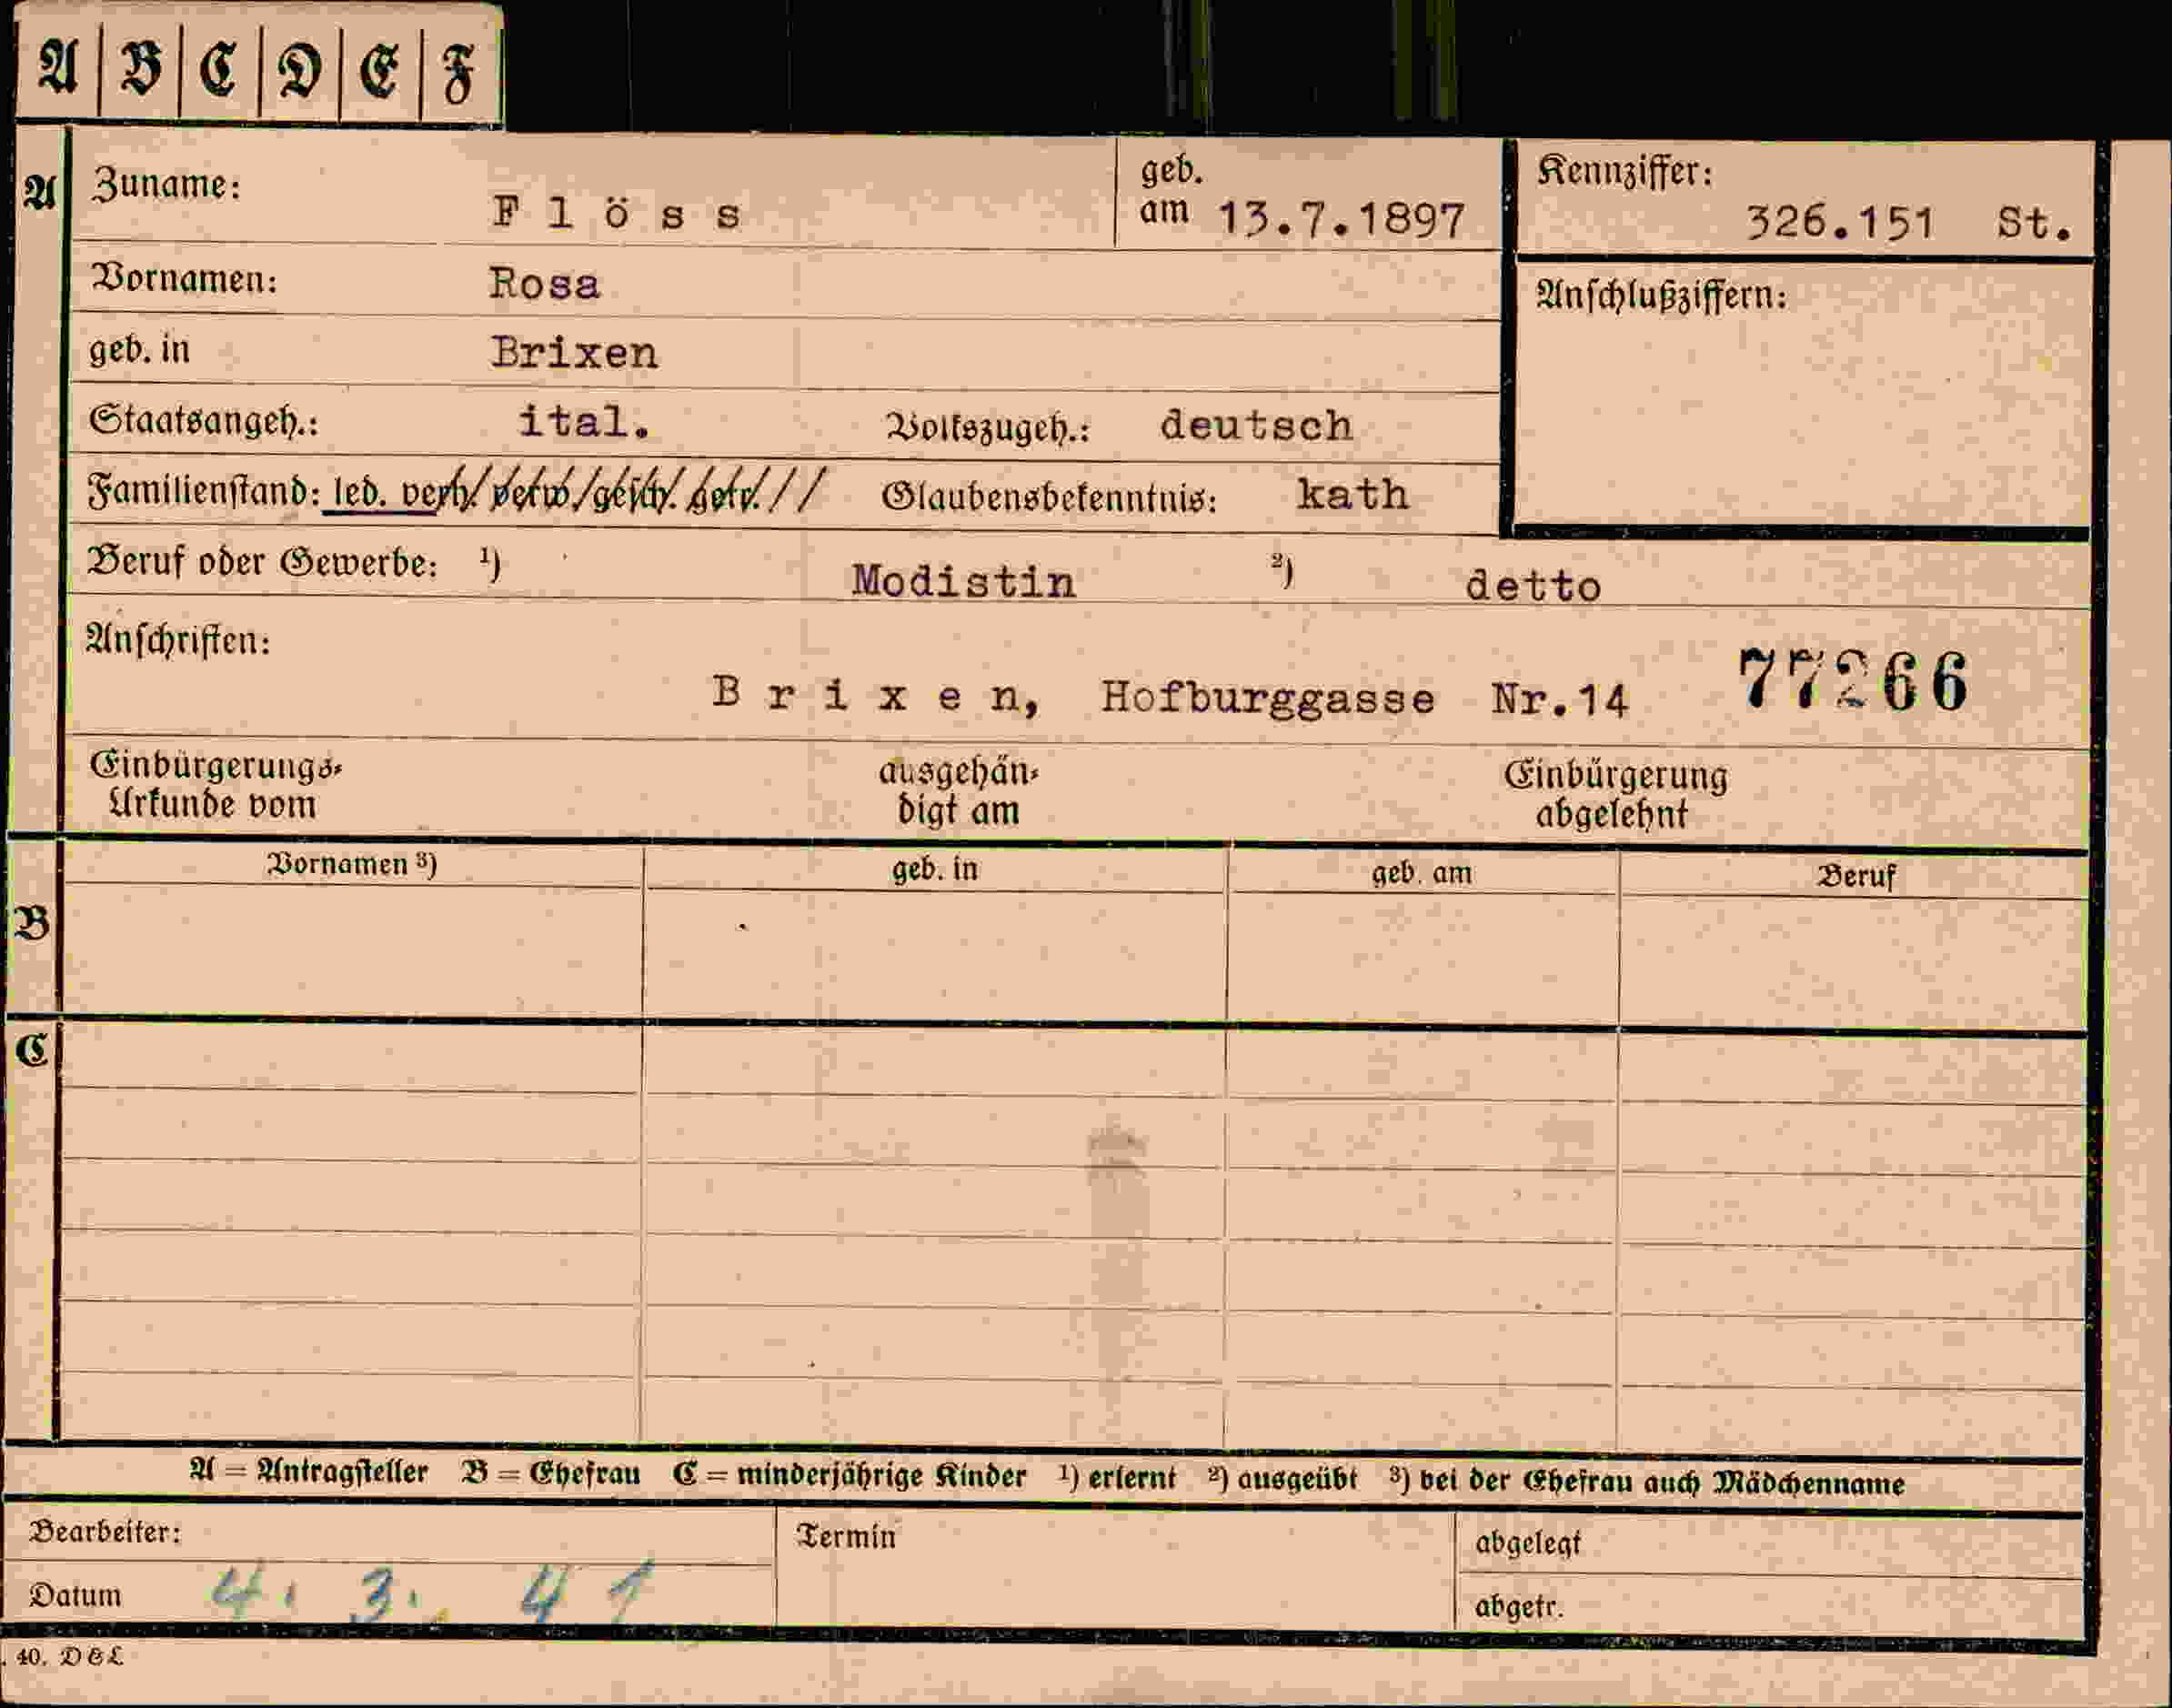 A B C D E F
A Zuname: Flöss geb. am 13.7.1897 Kennziffer: 326.151 St.
Vornamen: Rosa Anschlußziffern:
geb. in Brixen
Staatsangeh.: ital. Volkszugeh.: deutsch
Familienstand: led. verh. verw. gesch. getr. // Glaubensbekenntnis: kath
Beruf oder Gewerbe: ¹) Modistin ²) detto
Anschriften:
Brixen, Hofburggasse Nr.14 77266
Einbürgerungs- ausgehän- Einbürgerung
Urkunde vom digt am abgelehnt
Vornamen ³) geb. in geb. am Beruf
B
C
A = Antragsteller B = Ehefrau C = minderjährige Kinder ¹) erlernt ²) ausgeübt ³) bei der Ehefrau auch Mädchenname
Bearbeiter: Termin abgelegt
Datum 4. 3. 41 abgetr.
40. D&L